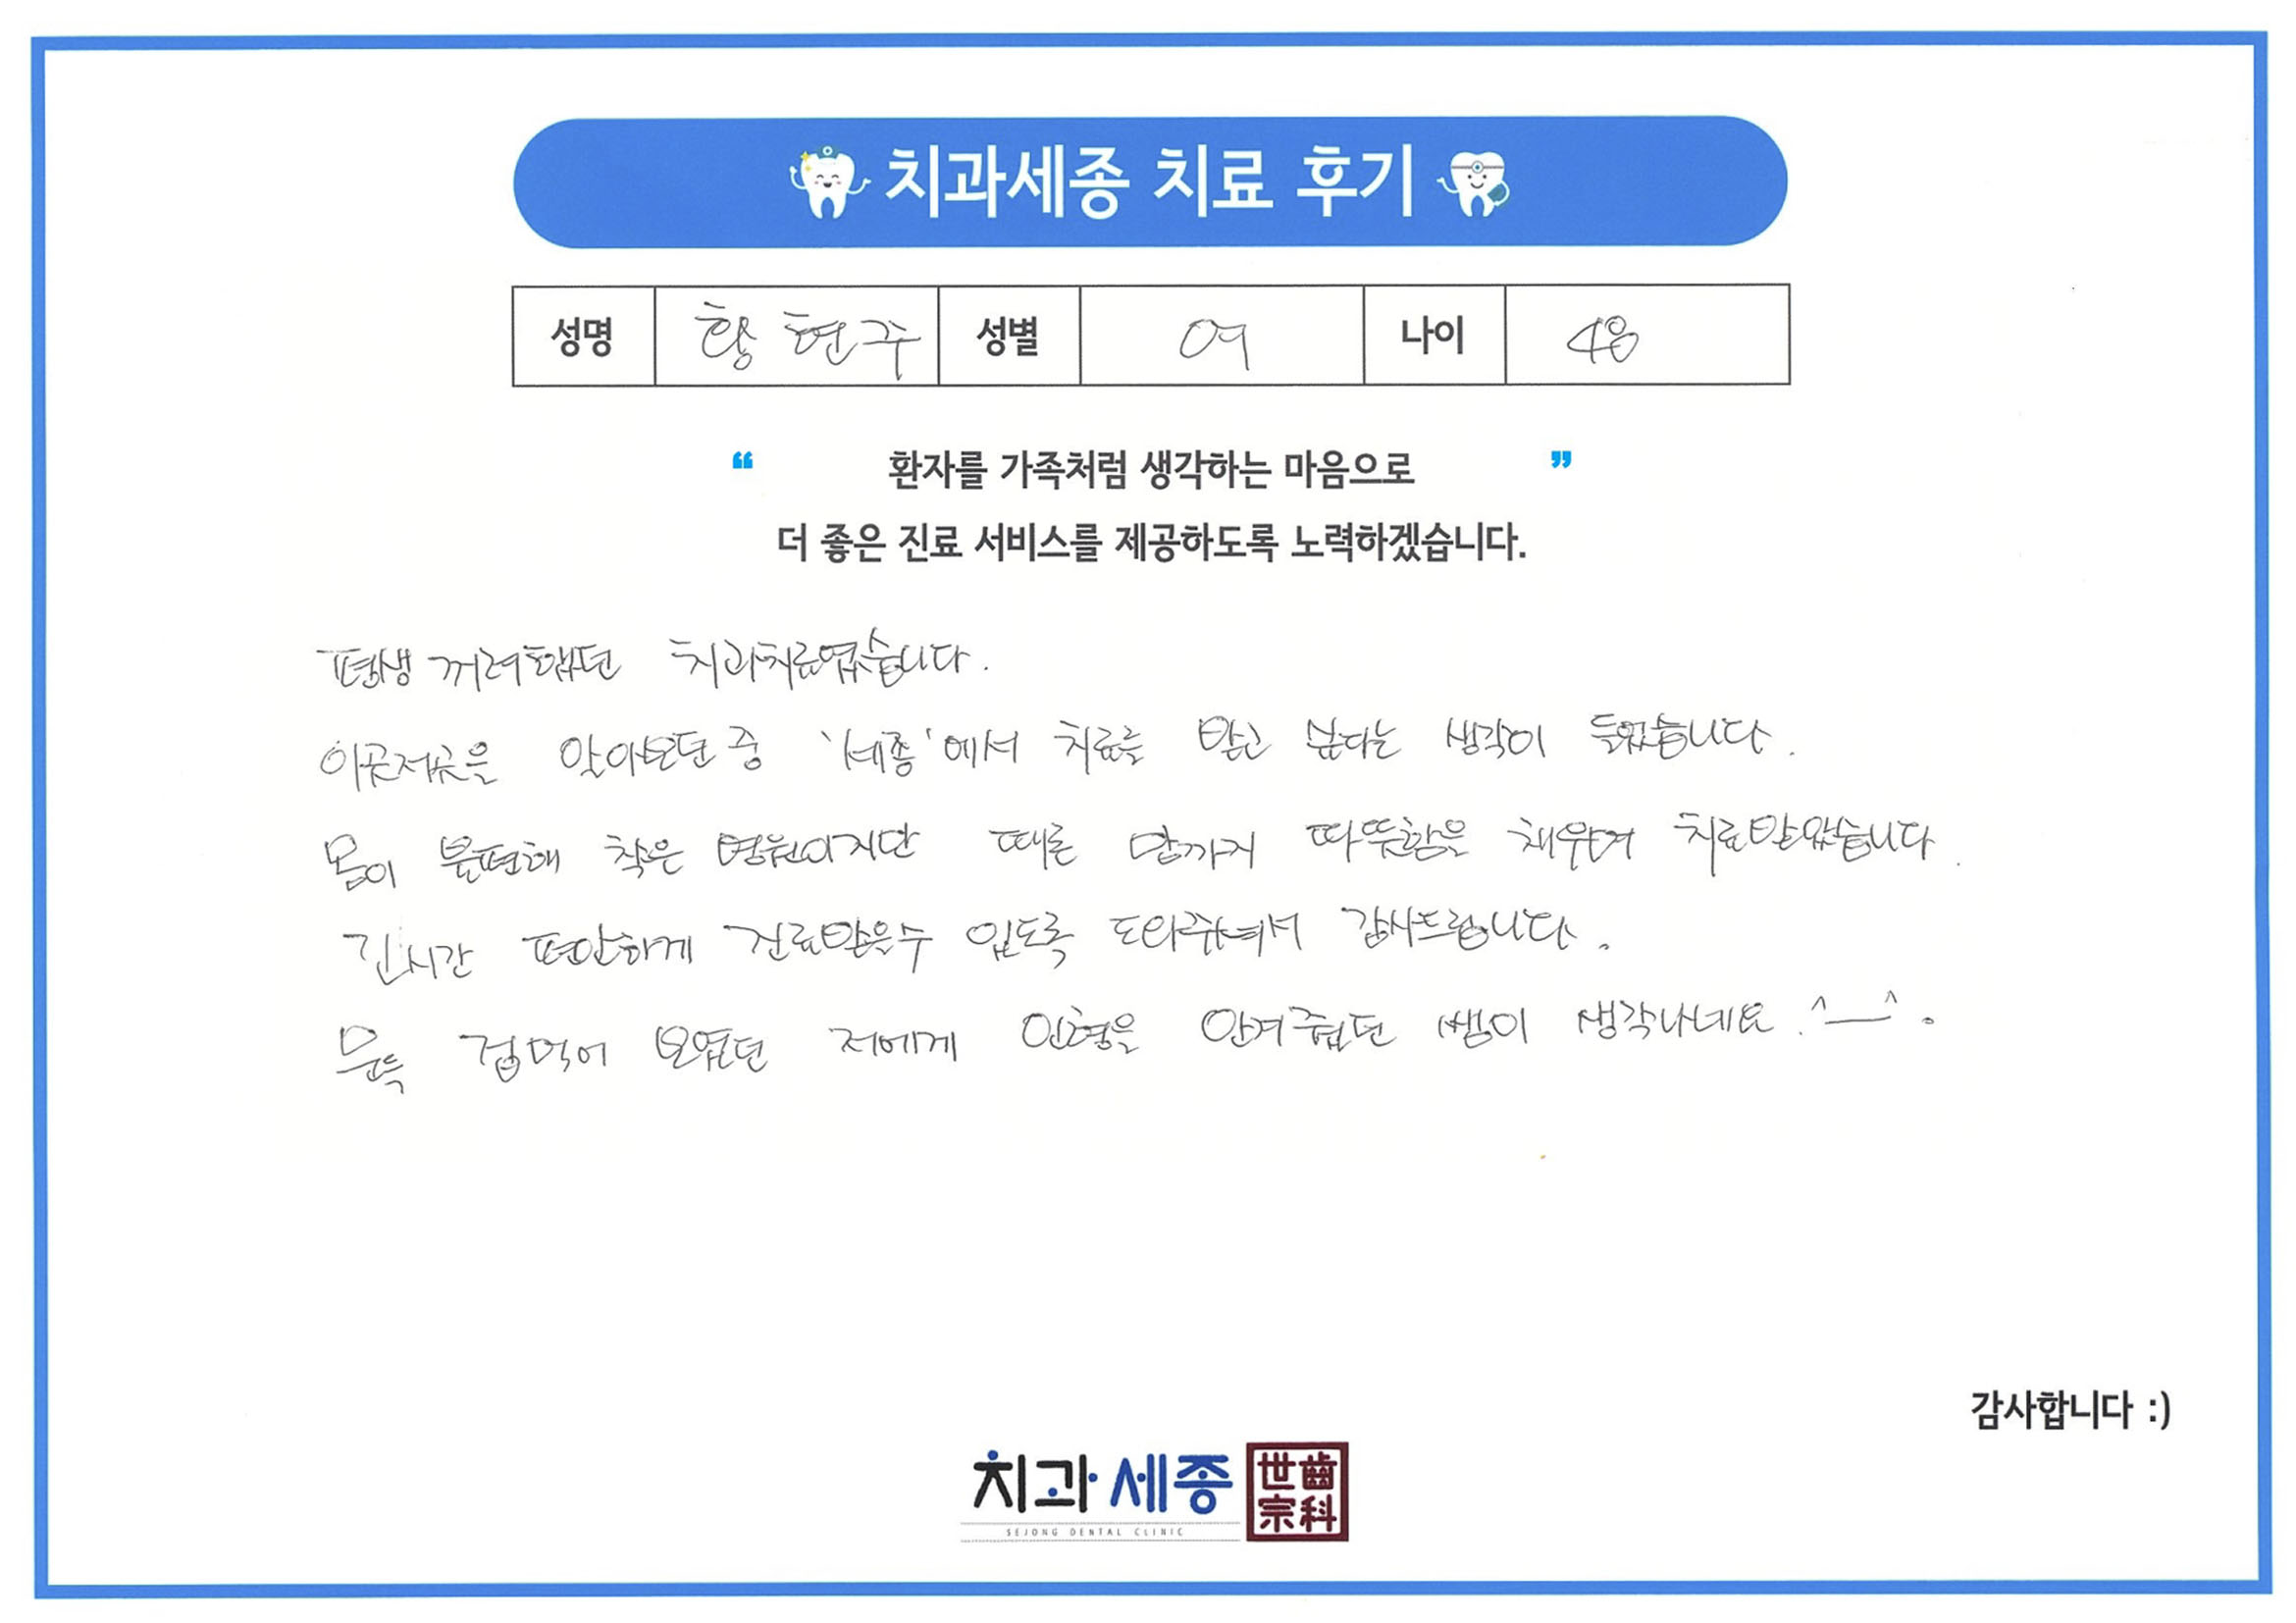 치과세종 치료 후기
성명 황현주 성별 여 나이 48
“ 환자를 가족처럼 생각하는 마음으로 ”
더 좋은 진료 서비스를 제공하도록 노력하겠습니다.
평생 꺼려했던 치과치료였습니다.
이곳저곳을 알아보던 중 '세종'에서 치료를 받고 싶다는 생각이 들었습니다.
몸이 불편해 찾은 병원이지만 때론 맘까지 따뜻함을 채우며 치료받았습니다.
긴시간 편안하게 진료받을수 있도록 도와주셔서 감사드립니다.
문득 겁먹어 보였던 저에게 인형을 안겨줬던 쌤이 생각나네요.^__^.
감사합니다 :)
치과세종
世齒
宗科
SEJONG DENTAL CLINIC